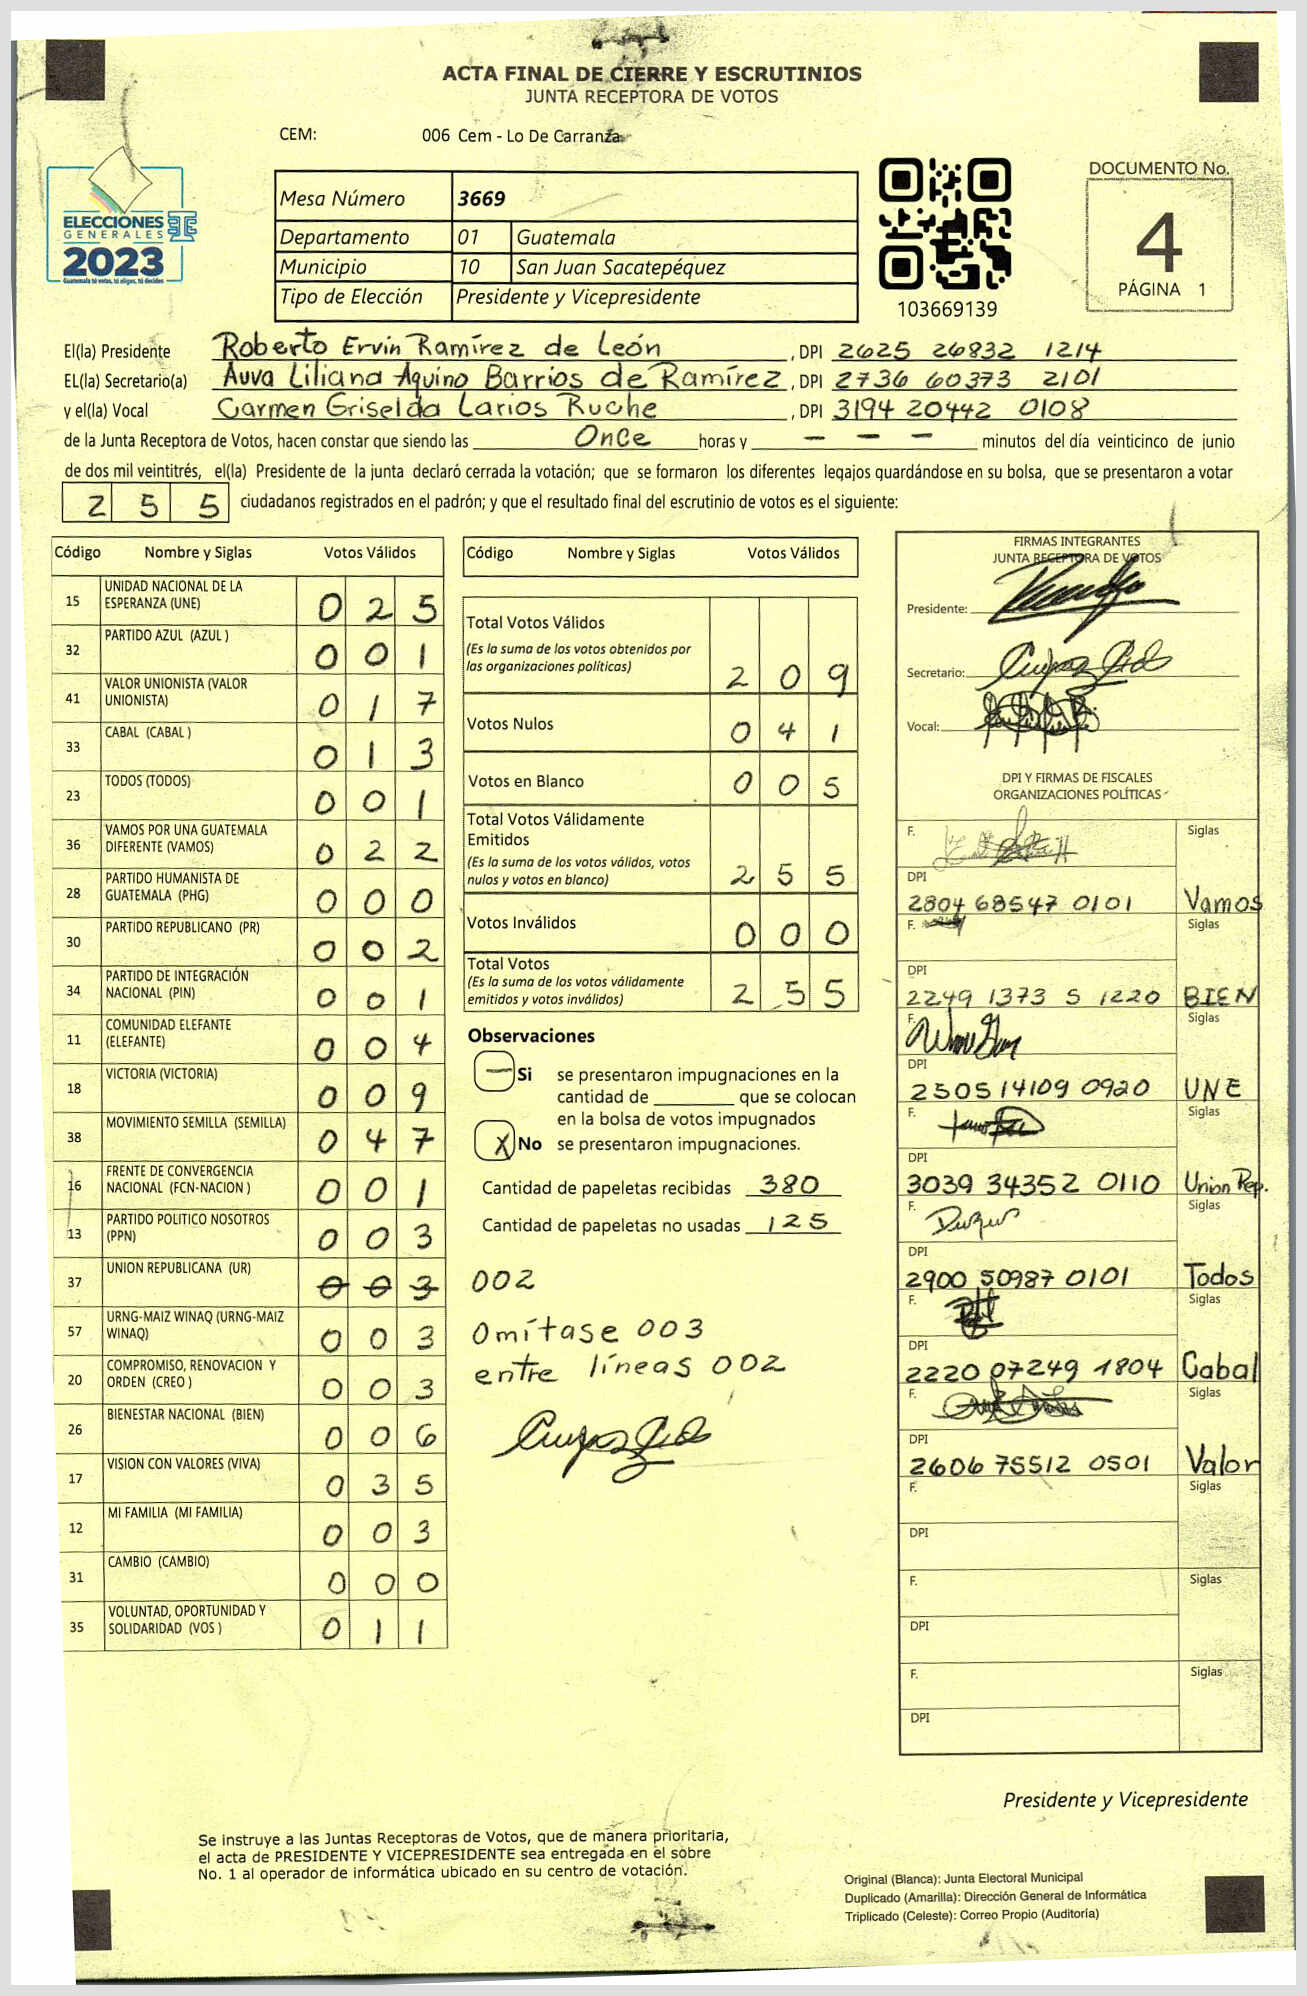 ACTA FINAL DE CIERRE Y ESCRUTINIOS
JUNTA RECEPTORA DE VOTOS
CEM: 006 Cem - Lo De Carranza
ELECCIONES
GENERALES
2023
Guatemala tú votas, tú eliges, tú decides
Mesa Número 3669
Departamento 01 Guatemala
Municipio 10 San Juan Sacatepéquez
Tipo de Elección Presidente y Vicepresidente
103669139
DOCUMENTO No.
4
PÁGINA 1
El(la) Presidente Roberto Ervin Ramírez de León, DPI 2625 26832 1214
EL(la) Secretario(a) Auva Liliana Aquino Barrios de Ramírez, DPI 2736 60373 2101
y el(la) Vocal Carmen Griselda Larios Ruche, DPI 3194 20442 0108
de la Junta Receptora de Votos, hacen constar que siendo las Once horas y - - - minutos del día veinticinco de junio
de dos mil veintitrés, el(la) Presidente de la junta declaró cerrada la votación; que se formaron los diferentes legajos guardándose en su bolsa, que se presentaron a votar
255 ciudadanos registrados en el padrón; y que el resultado final del escrutinio de votos es el siguiente:
Código Nombre y Siglas Votos Válidos
15 UNIDAD NACIONAL DE LA ESPERANZA (UNE) 025
32 PARTIDO AZUL (AZUL ) 001
41 VALOR UNIONISTA (VALOR UNIONISTA) 017
33 CABAL (CABAL ) 013
23 TODOS (TODOS) 001
36 VAMOS POR UNA GUATEMALA DIFERENTE (VAMOS) 022
28 PARTIDO HUMANISTA DE GUATEMALA (PHG) 000
30 PARTIDO REPUBLICANO (PR) 002
34 PARTIDO DE INTEGRACIÓN NACIONAL (PIN) 001
11 COMUNIDAD ELEFANTE (ELEFANTE) 004
18 VICTORIA (VICTORIA) 009
38 MOVIMIENTO SEMILLA (SEMILLA) 047
16 FRENTE DE CONVERGENCIA NACIONAL (FCN-NACION ) 001
13 PARTIDO POLITICO NOSOTROS (PPN) 003
37 UNION REPUBLICANA (UR) 003
57 URNG-MAIZ WINAQ (URNG-MAIZ WINAQ) 003
20 COMPROMISO, RENOVACION Y ORDEN (CREO ) 003
26 BIENESTAR NACIONAL (BIEN) 006
17 VISION CON VALORES (VIVA) 035
12 MI FAMILIA (MI FAMILIA) 003
31 CAMBIO (CAMBIO) 000
35 VOLUNTAD, OPORTUNIDAD Y SOLIDARIDAD (VOS ) 011
Código Nombre y Siglas Votos Válidos
Total Votos Válidos 209
(Es la suma de los votos obtenidos por
las organizaciones políticas)
Votos Nulos 041
Votos en Blanco 005
Total Votos Válidamente
Emitidos 255
(Es la suma de los votos válidos, votos
nulos y votos en blanco)
Votos Inválidos 000
Total Votos 255
(Es la suma de los votos válidamente
emitidos y votos inválidos)
Observaciones
— Si se presentaron impugnaciones en la
cantidad de ________ que se colocan
en la bolsa de votos impugnados
X No se presentaron impugnaciones.
Cantidad de papeletas recibidas 380
Cantidad de papeletas no usadas 125
002
Omítase 003
entre líneas 002
FIRMAS INTEGRANTES
JUNTA RECEPTORA DE VOTOS
Presidente:
Secretario:
Vocal:
DPI Y FIRMAS DE FISCALES
ORGANIZACIONES POLÍTICAS
F. Siglas
DPI
2804 68547 0101 Vamos
F. Siglas
DPI
2249 1373 5 1220 BIEN
F. Siglas
DPI
2505 14109 0920 UNE
F. Siglas
DPI
3039 34352 0110 Union Rep.
F. Siglas
DPI
2900 50987 0101 Todos
F. Siglas
DPI
2220 07249 1804 Cabal
F. Siglas
DPI
2606 75512 0501 Valor
F. Siglas
DPI
F. Siglas
DPI
F. Siglas
DPI
Presidente y Vicepresidente
Se instruye a las Juntas Receptoras de Votos, que de manera prioritaria,
el acta de PRESIDENTE Y VICEPRESIDENTE sea entregada en el sobre
No. 1 al operador de informática ubicado en su centro de votación.
Original (Blanca): Junta Electoral Municipal
Duplicado (Amarilla): Dirección General de Informática
Triplicado (Celeste): Correo Propio (Auditoría)